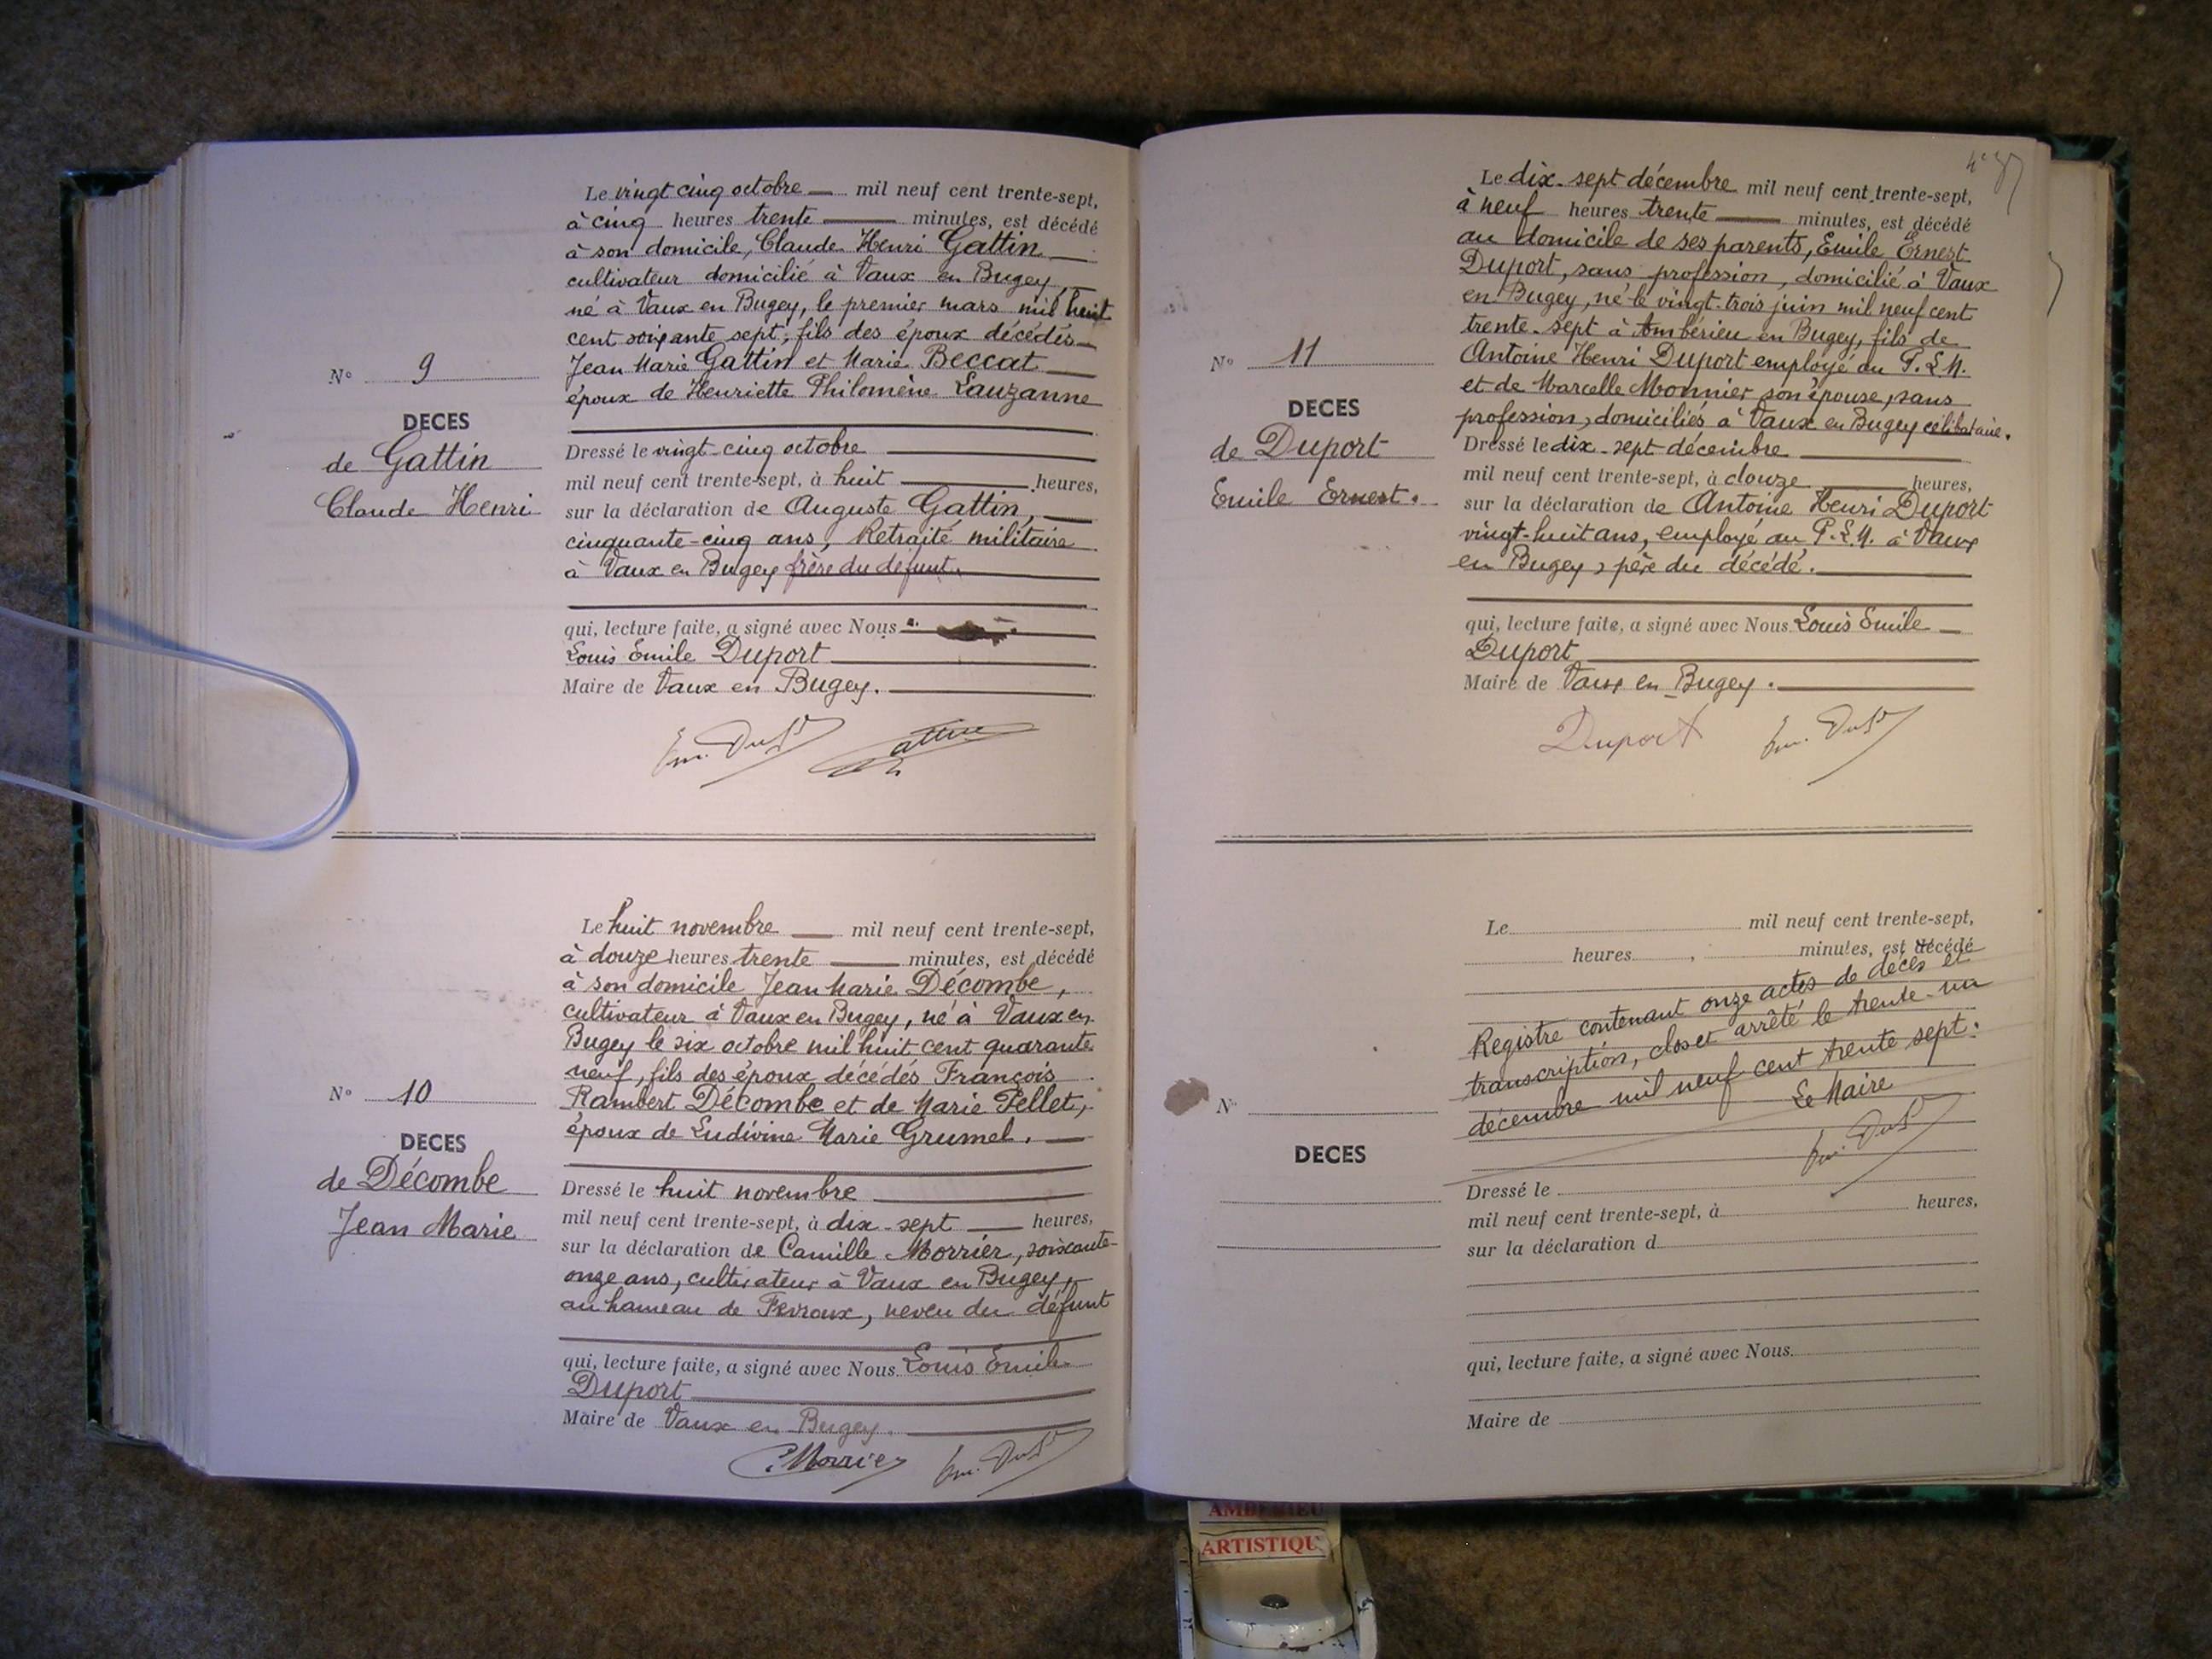 Le vingt cinq octobre mil neuf cent trente-sept,
à cinq heures trente minutes, est décédé
à son domicile, Claude Henri Gattin
cultivateur domicilié à Vaux en Bugey,
né à Vaux en Bugey, le premier mars mil huit
cent soixante sept, fils des époux décédés
Jean Marie Gattin et Marie Beccat
époux de Henriette Philomène Lauzanne
N° 9
DECES
de Gattin
Claude Henri
Dressé le vingt-cinq octobre
mil neuf cent trente-sept, à huit heures,
sur la déclaration de Auguste Gattin,
cinquante-cinq ans, Retraité militaire
à Vaux en Bugey frère du défunt.
qui, lecture faite, a signé avec Nous
Louis Emile Duport
Maire de Vaux en Bugey.
Em. Dupt Gattin
Le huit novembre mil neuf cent trente-sept,
à douze heures trente minutes, est décédé
à son domicile Jean Marie Décombe,
cultivateur à Vaux en Bugey, né à Vaux en
Bugey le six octobre mil huit cent quarante
neuf, fils des époux décédés François
Rambert Décombe et de Marie Pellet,
époux de Ludivine Marie Grumel.
N° 10
DECES
de Décombe
Jean Marie
Dressé le huit novembre
mil neuf cent trente-sept, à dix-sept heures,
sur la déclaration de Camille Morrier, soixante-
onze ans, cultivateur à Vaux en Bugey,
au hameau de Févroux, neveu du défunt
qui, lecture faite, a signé avec Nous Louis Emile
Duport
Maire de Vaux en Bugey.
C. Morrier Em. Dupt
Le dix-sept décembre mil neuf cent trente-sept,
à neuf heures trente minutes, est décédé
au domicile de ses parents, Emile Ernest
Duport, sans profession, domicilié à Vaux
en Bugey, né le vingt-trois juin mil neuf cent
trente-sept à Ambérieu en Bugey, fils de
Antoine Henri Duport employé au P.L.M.
et de Marcelle Monnier son épouse, sans
profession, domiciliés à Vaux en Bugey célibataire.
N° 11
DECES
de Duport
Emile Ernest.
Dressé le dix-sept décembre
mil neuf cent trente-sept, à douze heures,
sur la déclaration de Antoine Henri Duport
vingt-huit ans, employé au P.L.M. à Vaux
en Bugey, père du décédé.
qui, lecture faite, a signé avec Nous Louis Emile
Duport
Maire de Vaux en Bugey.
Duport Em. Dupt
Le mil neuf cent trente-sept,
heures, minutes, est décédé
Registre contenant onze actes de décès et
transcription, clos et arrêté le trente-un
décembre mil neuf cent trente sept.
Le Maire
Em. Dupt
N°
DECES
Dressé le
mil neuf cent trente-sept, à heures,
sur la déclaration d
qui, lecture faite, a signé avec Nous
Maire de
AMBERIEU
ARTISTIQU